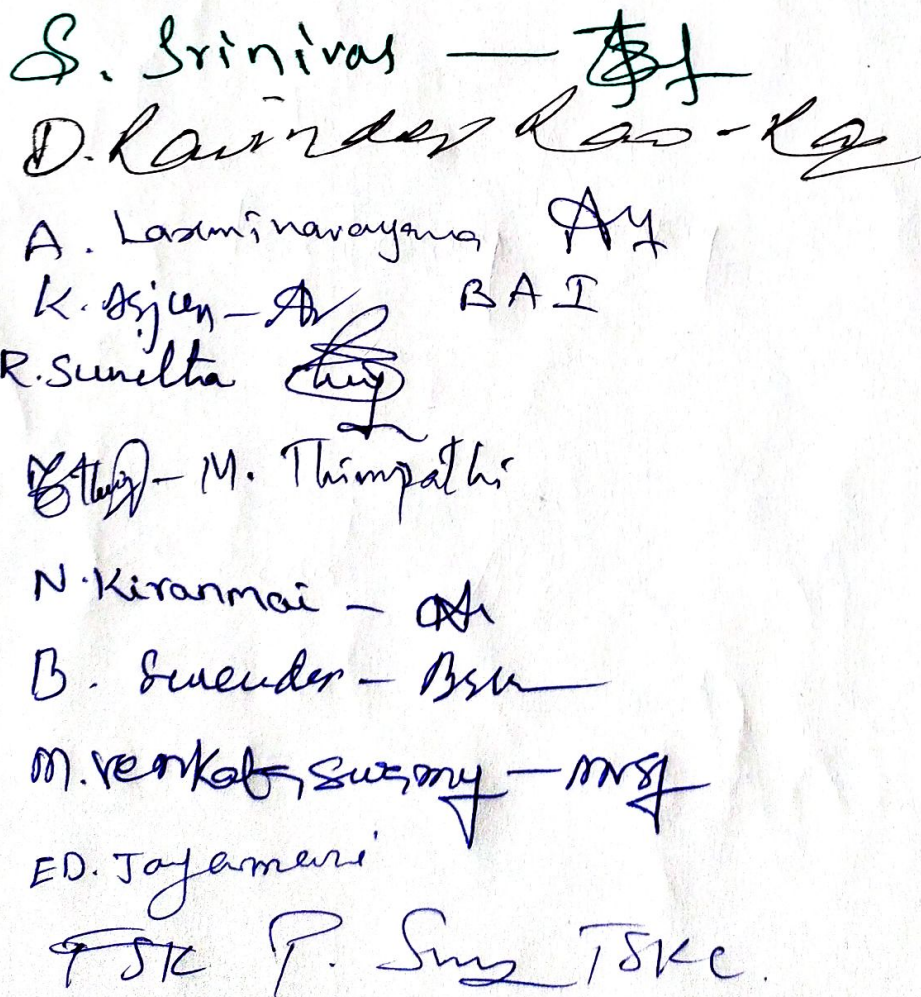 S. Srinivas —
D. Ravinder Rao - Ra
A. Laxminarayana Ay
K. Arjun - Ar BAI
R. Sunitha
- M. Thirupathi
N. Kiranmai -
B. Surender - Bsu
M. Venkataswamy - mvsy
ED. Jayamani
TSK P. TSKC.